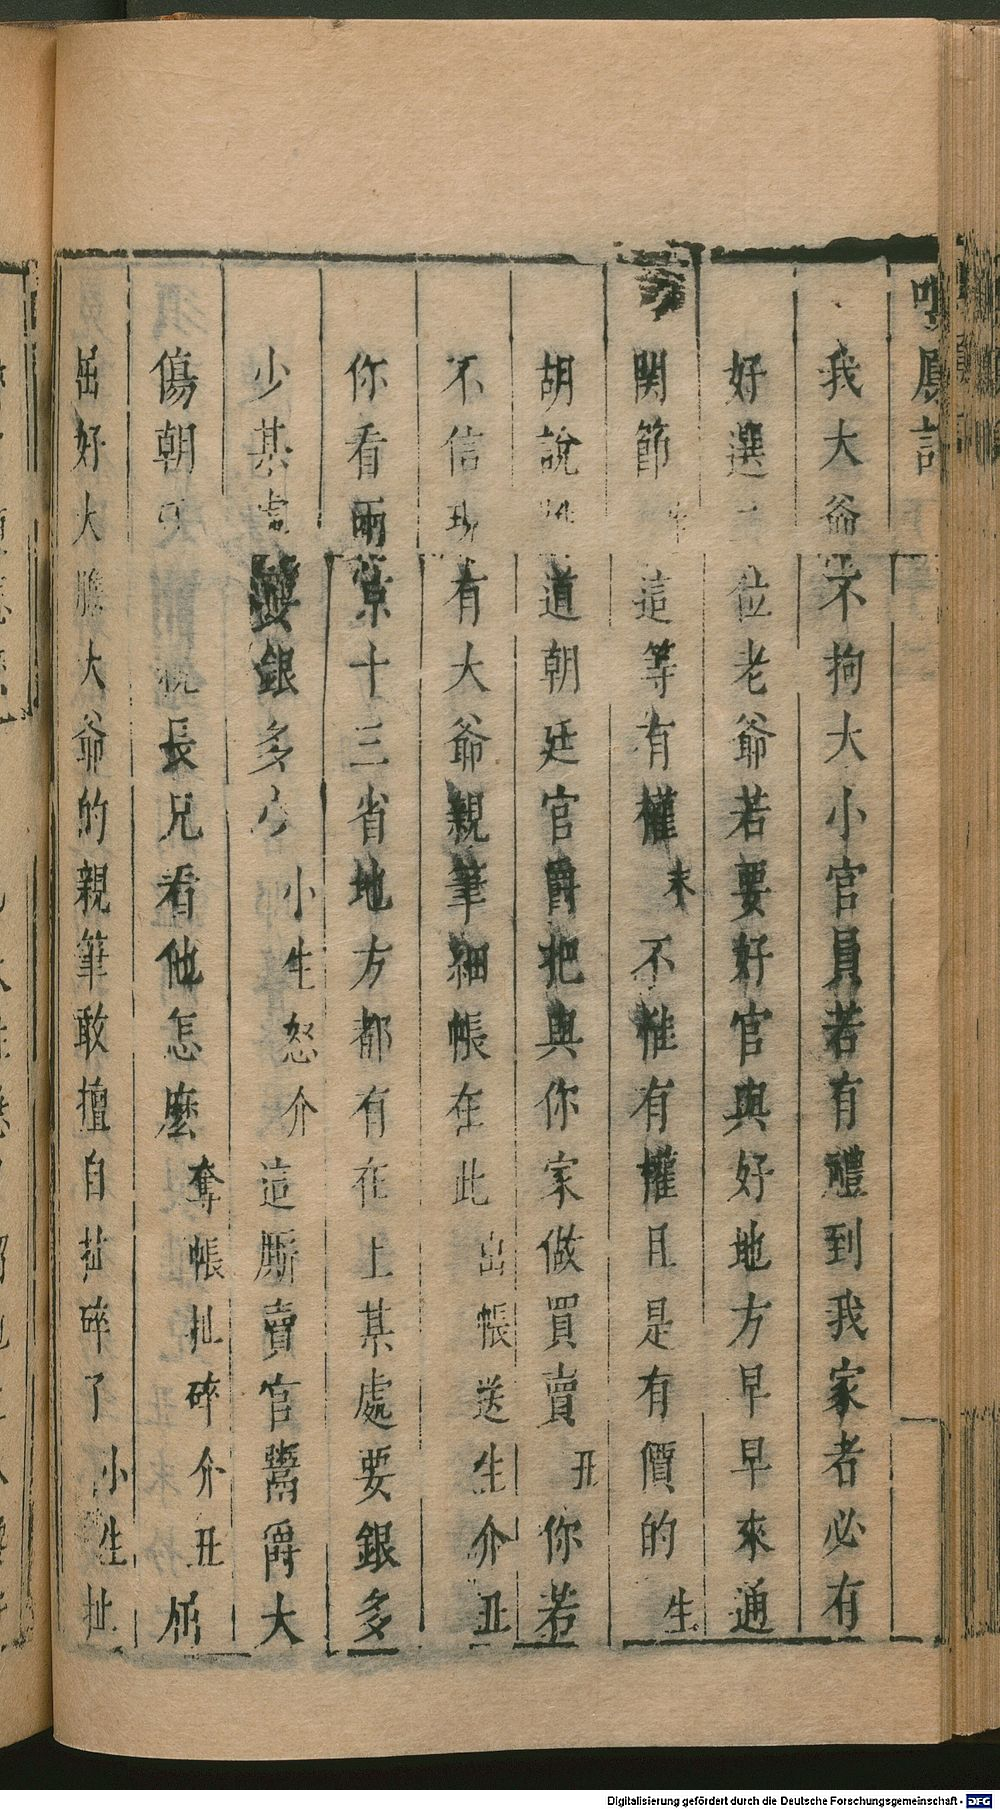 鳴鳳記
我大爺不拘大小官員若有禮到我家者必有
好選 位老爺若要好官與好地方早早來通
関節 生 這等有權 末 不惟有權且是有價的 生
胡說 道朝廷官爵把與你家做買賣 丑 你若
不信現有大爺親筆細帳在此 出帳送生介丑
你看兩京十三省地方都有在上某處要銀多
少某處要銀多少 小生怒介 這厮賣官鬻爵大
傷朝 長兄看他怎麽 奪帳扯碎介丑 屈
屈好大膽大爺的親筆敢擅自扯碎了 小生扯
Digitalisierung gefördert durch die Deutsche Forschungsgemeinschaft - DFG